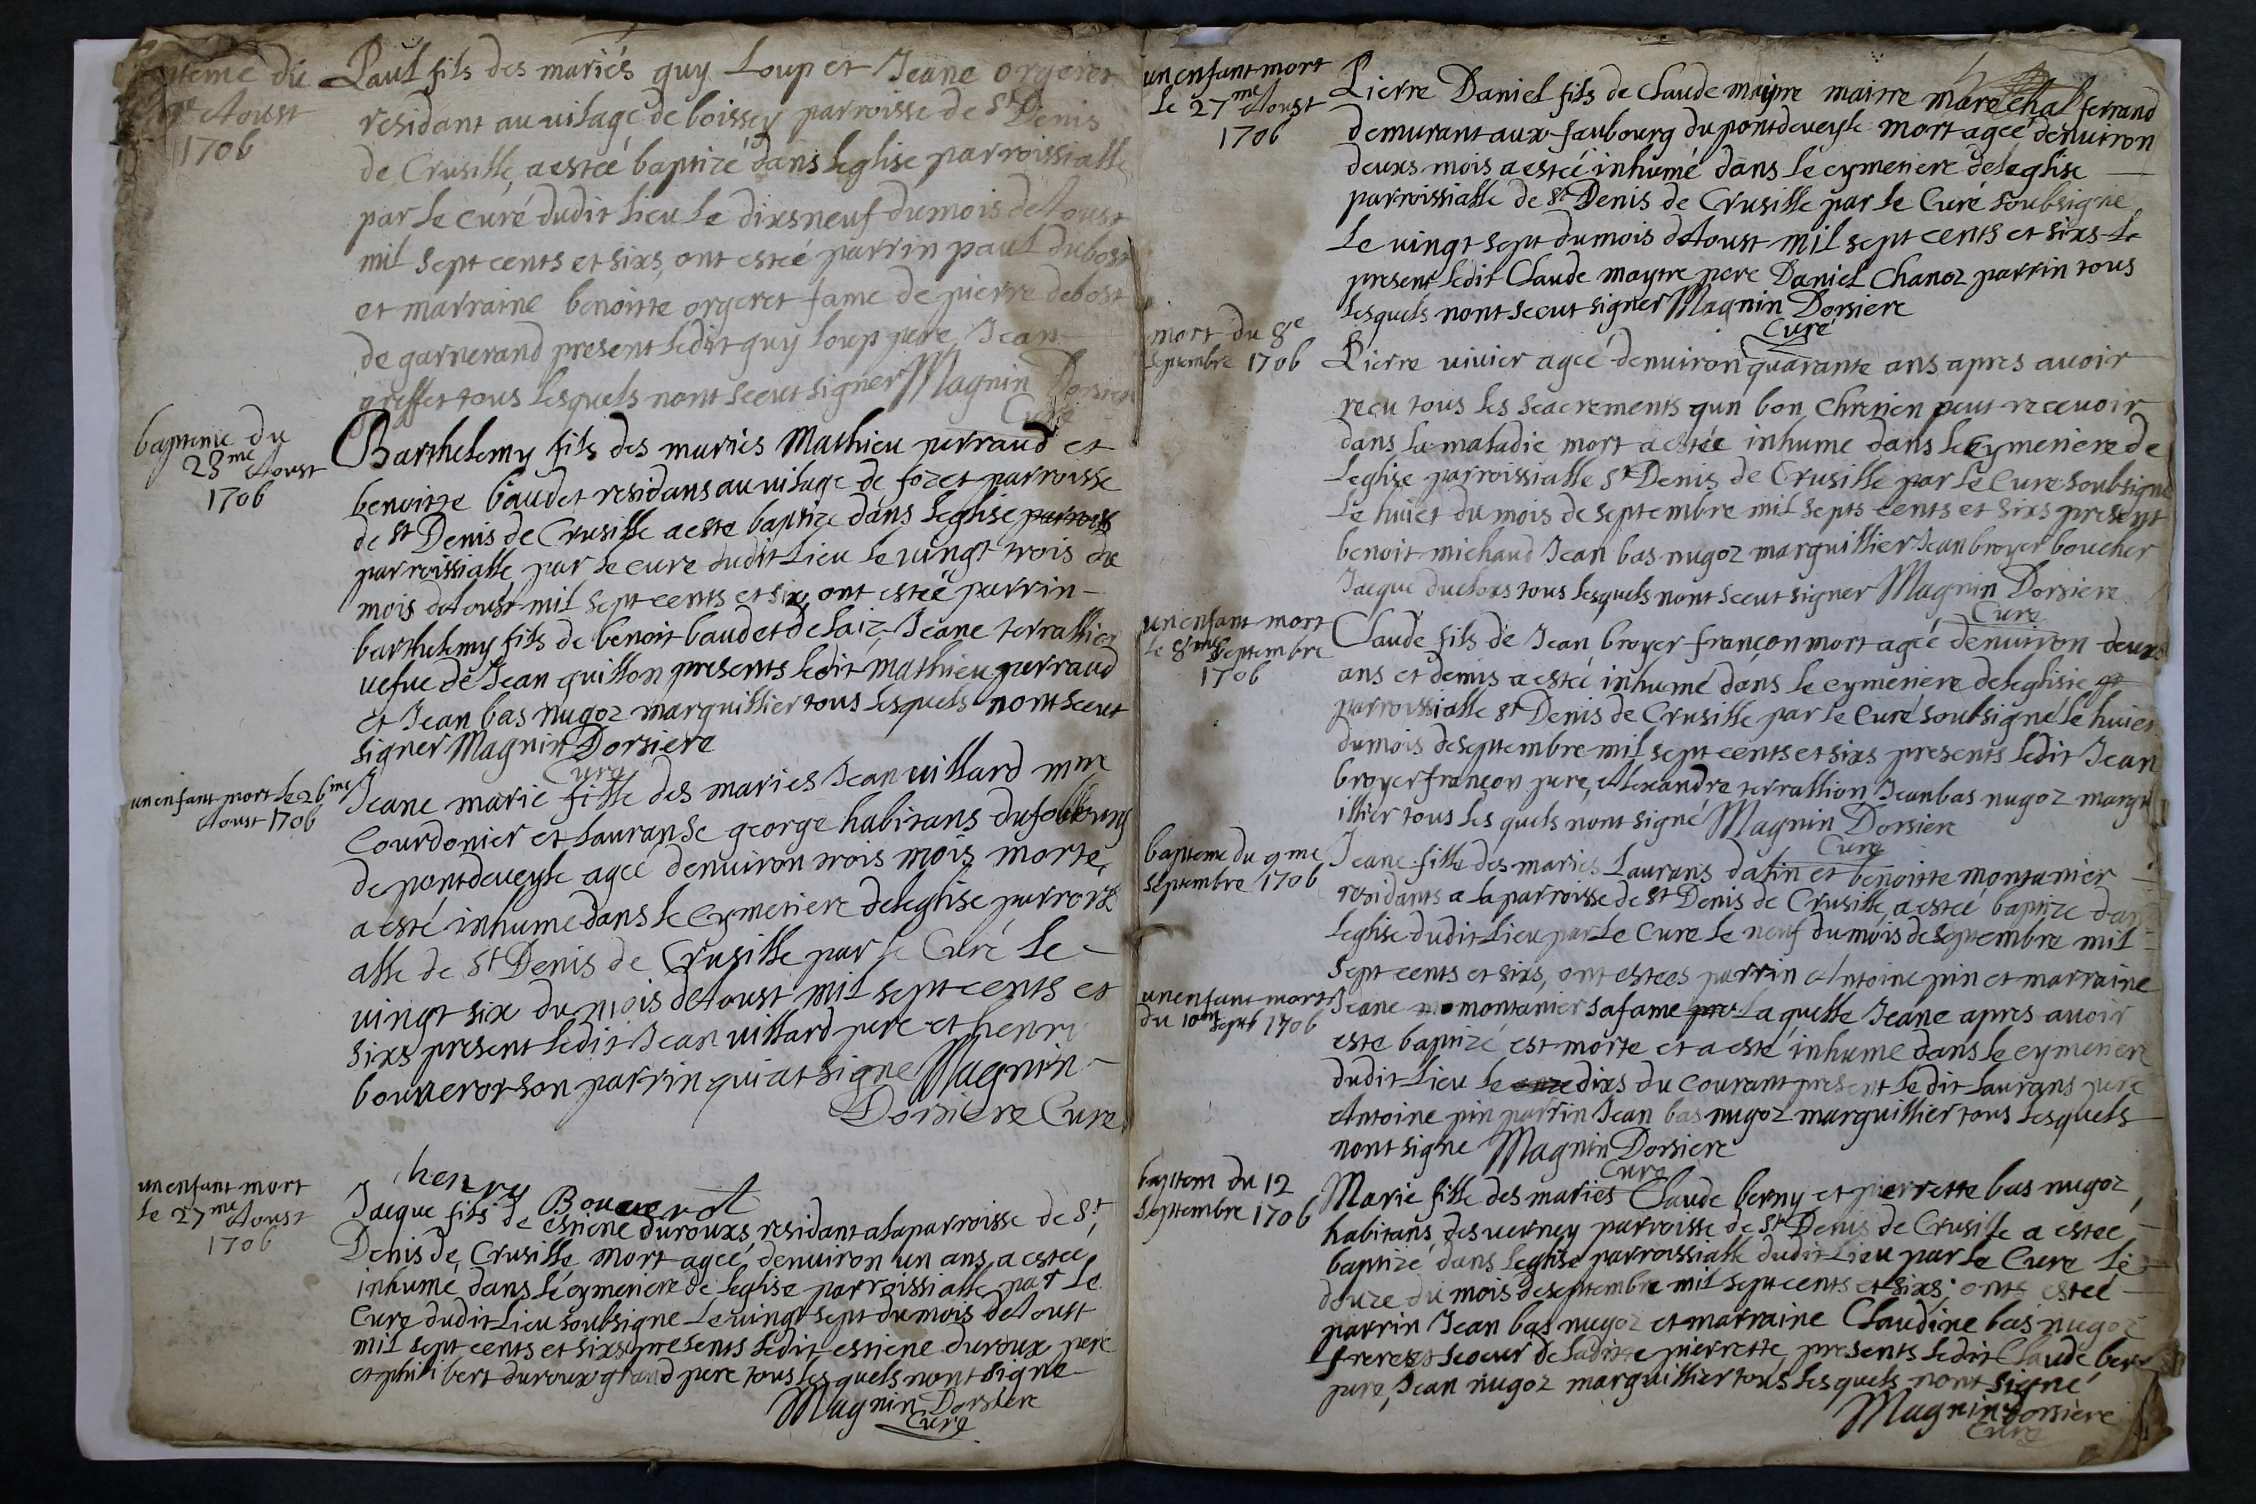 du
Aoust
1706
Paul fils des mariés guy Loup et Jeane orgeret
residant au vilage de boissey parroisse de St Denis
de Crusille, a estéé baptizé dans leglise parroissialle
par le curé dudit lieu le dixsneuf du mois dAoust
mil sept cents et sixs, ont estéé parrin paul dubost
et marraine benoitte orgeret fame de pierre debost
de garnerand present ledit guy loup pere, Jean
greffet tous lesquels nont sceut signer Magnin Dorsiere
Curé
bapteme du
23me Aoust
1706
Barthelemy fils des mariés Mathieu perraud et
benoitte baudet residans au vilage de fozet parroisse
de St Denis de Crusille a esté baptize dans leglise
parroissialle par le cure dudit Lieu le vingt trois du
mois dAoust mil sept cents et six, ont estéé parrin
barthelemy fils de benoit baudet de laiz, Jeane terrallion
vefve de Jean guillon presents ledit Mathieu perraud
et Jean bas nugoz marguillier tous lesquels nont sceut
signer Magnin Dorsiere
Cure
un enfant mort le 26me
Aoust 1706
Jeane marie fille des mariés Jean villard mre
Courdonier et Lauranse george habitans du fobourg
de pontdeveyle agéé denviron trois mois morte,
a esté inhume dans le Cymetiere deleglise parroissi
alle de St Denis de Crusille par le Curé le
vingt six du mois dAoust mil sept cents et
sixs present ledit Jean villard pere et henri
bouverot son parrin qui at signe Magnin
Dorsiere Cure
henry
Bouverot
un enfant mort
le 27me Aoust
1706
Jacque fils de estiene durouxs, residant a la parroisse de St
Denis de Crusille mort agéé denviron un ans, a estéé
inhume dans le cymetiere de leglise parroissialle par le
Cure dudit Lieu soubsigne le vingt sept du mois dAoust
mil sept cents et sixs presents ledit estiene duroux pere
et philibert duroux grand pere tous lesquels nont signe
Magnin Dorsiere
Cure
un enfant mort
le 27me Aoust
1706
Pierre Daniel fils de Claude maytre maitre marechal ferrand
demurant aux faubourg du pontdeveyle mort agéé denviron
deuxs mois a estéé inhumé dans le cymetiere deleglise
parroissialle de St Denis de Crusille par le Curé soubsigne
le vingt sept du mois dAoust mil sept cents et sixs
present ledit Claude maytre pere Daniel Chanoz parrin tous
lesquels nont sceut signer Magnin Dorsiere
Curé
mort du 8e
septembre 1706
Pierre vivier agéé denviron quarante ans apres avoir
reçu tous les seacrements qun bon Chretien peut recevoir
dans la maladie mort a estée inhume dans le Cymetiere de
Leglise parroissialle St Denis de Crusille par le Cure soubsigne
le huict du mois de septembre mil septs cents et sixs present
benoit michaud Jean bas nugoz marguillier Jean broyer boucher
Jacque ducloxs tous lesquels nont sceut signer Magnin Dorsiere
Cure
un enfant mort
le 8me septembre
1706
Claude fils de Jean broyer françon mort agéé denviron deuxs
ans et demis a estéé inhumé dans le cymetiere deleglisie
parroissialle St Denis de Crusille par le Curé soubsigné le huict
du mois de septembre mil sept cents et sixs presents ledit Jean
broyer françon pere, Alexandre terrallion Jean bas nugoz margu
illier tous lesquels nont signé Magnin Dorsiere
Cure
bapteme du 9me
septembre 1706
Jeane fille des mariés Laurans datin et benoitte montanier
residants a la parroisse de St Denis de Crusille, a estéé baptize dan
leglise dudit Lieu par le Cure le neuf du mois de septembre mil
sept cents et sixs, ont estees parrin Antoine pin et marraine
un enfant mort
du 10me septb 1706
Jeane montanier sa fame laquelle Jeane apres avoir
este baptizé est morte et a esté inhume dans le cymetiere
dudit Lieu le onze dixs du courant present ledit Laurans pere
Antoine pin parrin Jean bas nugoz marguillier tous lesquels
nont signe Magnin Dorsiere
Cure
baptem du 12
septembre 1706
Marie fille des mariés Claude berny et pierrette bas nugoz,
habitans des verney parroisse de St Denis de Crusille a estéé
baptizé dans leglise parroissialle dudit Lieu par le Cure le
douze du mois de septembre mil sept cents et sixs, onts estéé
parrin Jean bas nugoz et marraine Claudine bas nugoz
frere et soeur de ladite pierrette presents ledit Claude
pere, Jean nugoz marguillier tous lesquels nont signé
Magnin Dorsiere
Cure